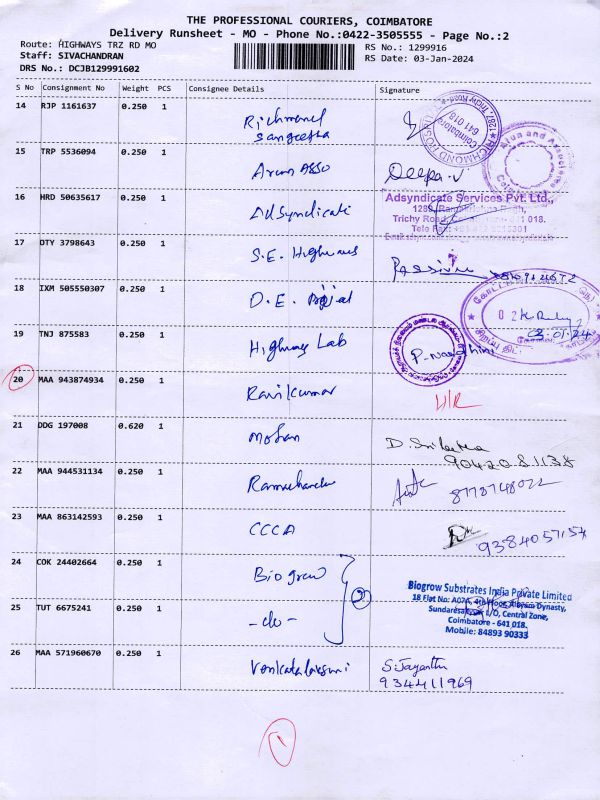 THE PROFESSIONAL COURIERS, COIMBATORE
Delivery Runsheet - MO - Phone No.:0422-3505555 - Page No.:2
Route: HIGHWAYS TRZ RD MO
RS No.: 1299916
Staff: SIVACHANDRAN
RS Date: 03-Jan-2024
DRS No.: DCJB129991602
S No Consignment No Weight PCS Consignee Details Signature
14 RJP 1161637 0.250 1 Richmond
Sangeetha
15 TRP 5536094 0.250 1 Arun Asso Deepa.V
16 HRD 50635617 0.250 1 Adsyndicate
Adsyndicate Services Pvt. Ltd.,
Trichy Road, 641 018.
17 OTY 3798643 0.250 1 S.E. Highways
18 IXM 505550307 0.250 1 D.E.
19 TNJ 875583 0.250 1 Highway Lab P. Nandhini
20 MAA 943874934 0.250 1 Ravikumar
21 DDG 197008 0.620 1 Mohan
9042081138
22 MAA 944531134 0.250 1
8778748022
23 MAA 863142593 0.250 1 CCCA
9384057154
24 COK 24402664 0.250 1 Biogrow
25 TUT 6675241 0.250 1 -do-
2
Biogrow Substrates India Private Limited
18 Flat No: Dynasty,
I/O, Central Zone,
Coimbatore - 641 018.
Mobile: 84893 90333
26 MAA 571960670 0.250 1 Venkatalakshmi S. Jayanthi
934411969
1